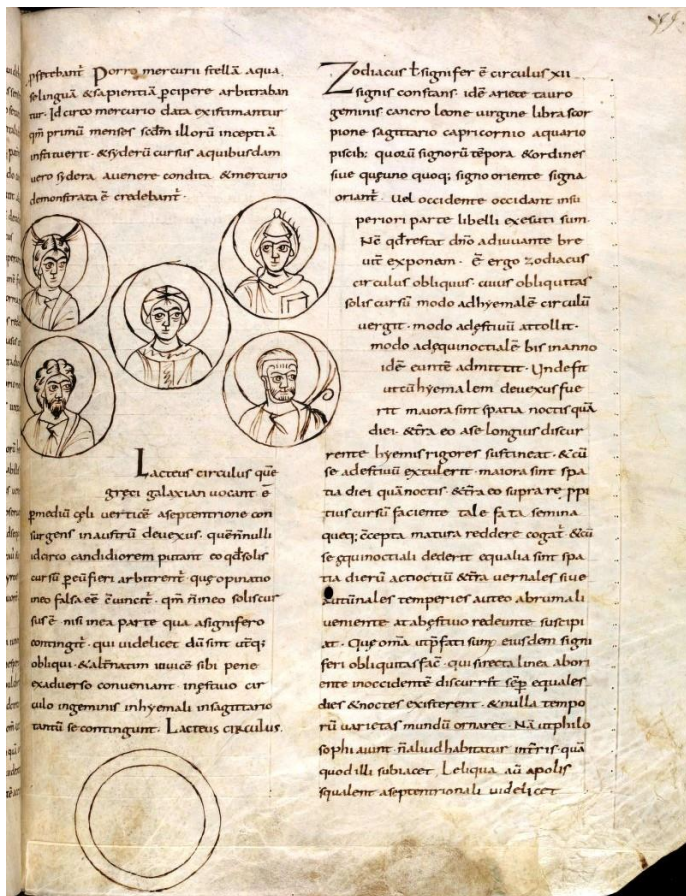 pstrebant̄. Porro mercurii stellā aqua,
se linguā & sapientiā pcipere arbitraban
tur. Idcirco mercurio data existimantur
qm̄ primū menses scdm̄ illorū incepti ā
instituerit. & syderū cursus a quibusdam
uero sydera a uenere condita & mercurio
demonstrata ē credebant̄.
Lacteus circulus que
greci galaxian uocant ē
p mediū cęli verticē a septentrione con
surgens in austrū deuexus. quē nnulli
idcirco candidiorem putant eo qd̄ solis
cursū p eū fieri arbitrent̄. quę opinatio
in eo falsa eē cuincit̄. qm̄ n̄ in eo solis cur
sus ē nisi in ea parte qua a signifero
contingit̄. qui uidelicet dū sint utq;
obliqui. & alt̄natim inuicē sibi pene
ex aduerso conueniant. in estiuo cir
culo in geminis in hyemali in sagittario
tantū se contingunt. Lacteus circulus.
Zodiacus ł signifer ē circulus xii
signis constans. idē ariete tauro
geminis cancro leone virgine libra scor
pione sagittario capricornio aquario
piscib; quorū signorū tēpora & ordines
siue quo quoq; signo oriente signa
oriant̄. uel occidente occidant in su
periori parte libelli exesuti sum.
Nē qd̄ restat dnō adiuuante bre
uit̄ exponam. ē ergo zodiacus
circulus obliquus. cuius obliquitas
solis cursū modo ad hyemalē circulū
uergit. modo ad ęstiuū attollit.
modo ad ęquinoctialē bis in anno
idē euntē admittit. Unde fit
ut cū hyemalem deuexus fue
rit maiora sint spatia noctis quā
diei. & t̄ra eo a se longius discur
rente hyemis rigores sustineat. & cū
se ad estiuū extulerit. maiora sint spa
tia diei quā noctis. & t̄ra eo supra re ppi
tius cursū faciente tale fata semina
queq; c̄cepta matura reddere cogat̄. & cū
se ęquinoctiali dederit equalia sint spa
tia dierū ac noctiū & t̄ra vernales siue
autūnales temperies aut eo a brumali
ueniente at ab ęstiuo redeunte suscipi
at. Quę om̄a ut p̄fati sum eiusdem signi
feri obliquitas fac̄. qui si recta linea ab ori
ente in occidentē discurrit sēp equales
dies & noctes existerent. & nulla tempo
rū uarietas mundū ornaret. Nā ut philo
sophi aiunt. n̄ aliud habitatur in t̄ris quā
quod illi subiacet, Leliqua aū a polis
squalent a septentrionali uidelicet